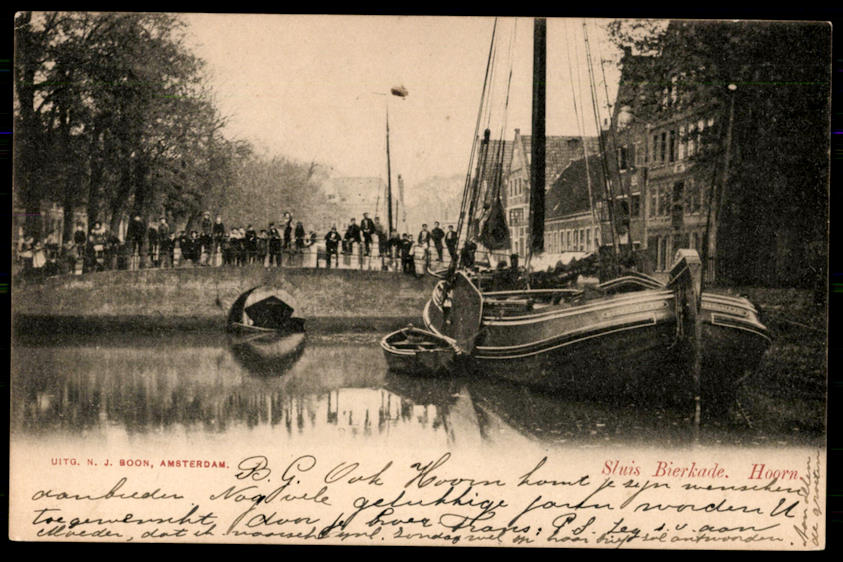 UITG. N. J. BOON, AMSTERDAM.
Sluis Bierkade. Hoorn.
B. G. Ook Hoorn komt je zijn wenschen
aanbieden Nog vele gelukkige jaren worden U
toegewenscht door je broer Frans: P.S. zeg s.v. aan
Moeder, dat ik Zondag wel op haar brief zal antwoorden.
Aan allen
de groeten